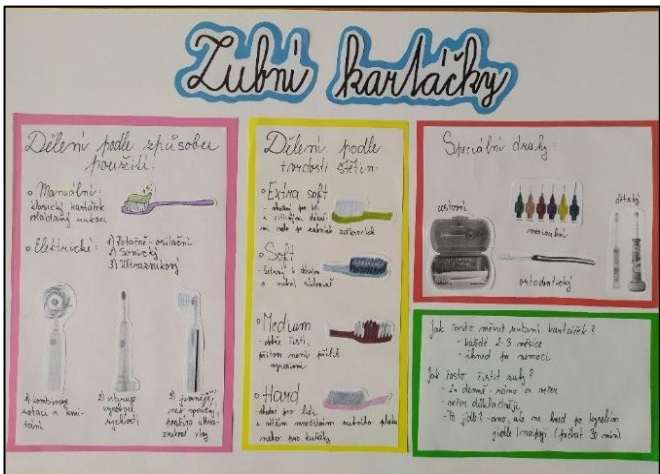 Zubní kartáčky
Dělení podle způsobu
použití:
Manuální:
klasický kartáček
ovládaný rukou
Elektrické: 1) Rotačně-oscilační
2) Sonický
3) Ultrazvukový
1) kombinuje
rotaci a kmi-
tání
2) vibruje
vysokou
rychlostí
3) jemnější,
než sonický,
používá ultra-
zvukové vlny
Dělení podle
tvrdosti štětin:
Extra soft
s citlivými
nebo po zubních zákrocích
Soft
šetrný k dásním
a zubní sklovině
Medium
dobře čistí,
přitom není příliš
agresivní
Hard
vhodné pro lidi
s větším množstvím zubního plaku
nebo pro kuřáky
Speciální druhy:
cestovní
mezizubní
dětský
ortodontický
Jak často měnit zubní kartáček?
- každé 2-3 měsíce
- ihned po nemoci
Jak často čistit zuby?
- 2x denně - ráno a večer
- večer důkladněji
- Po jídle? - ano, ale ne hned po kyselém
jídle/nápoji (počkat 30 min)